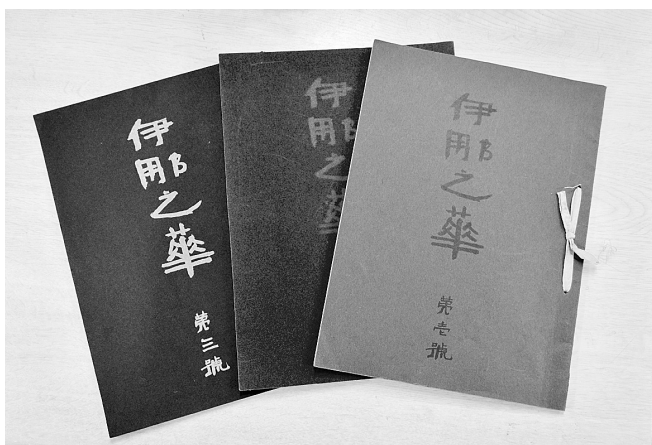 伊那之華
第壱號
伊那之華
伊那之華
第三號